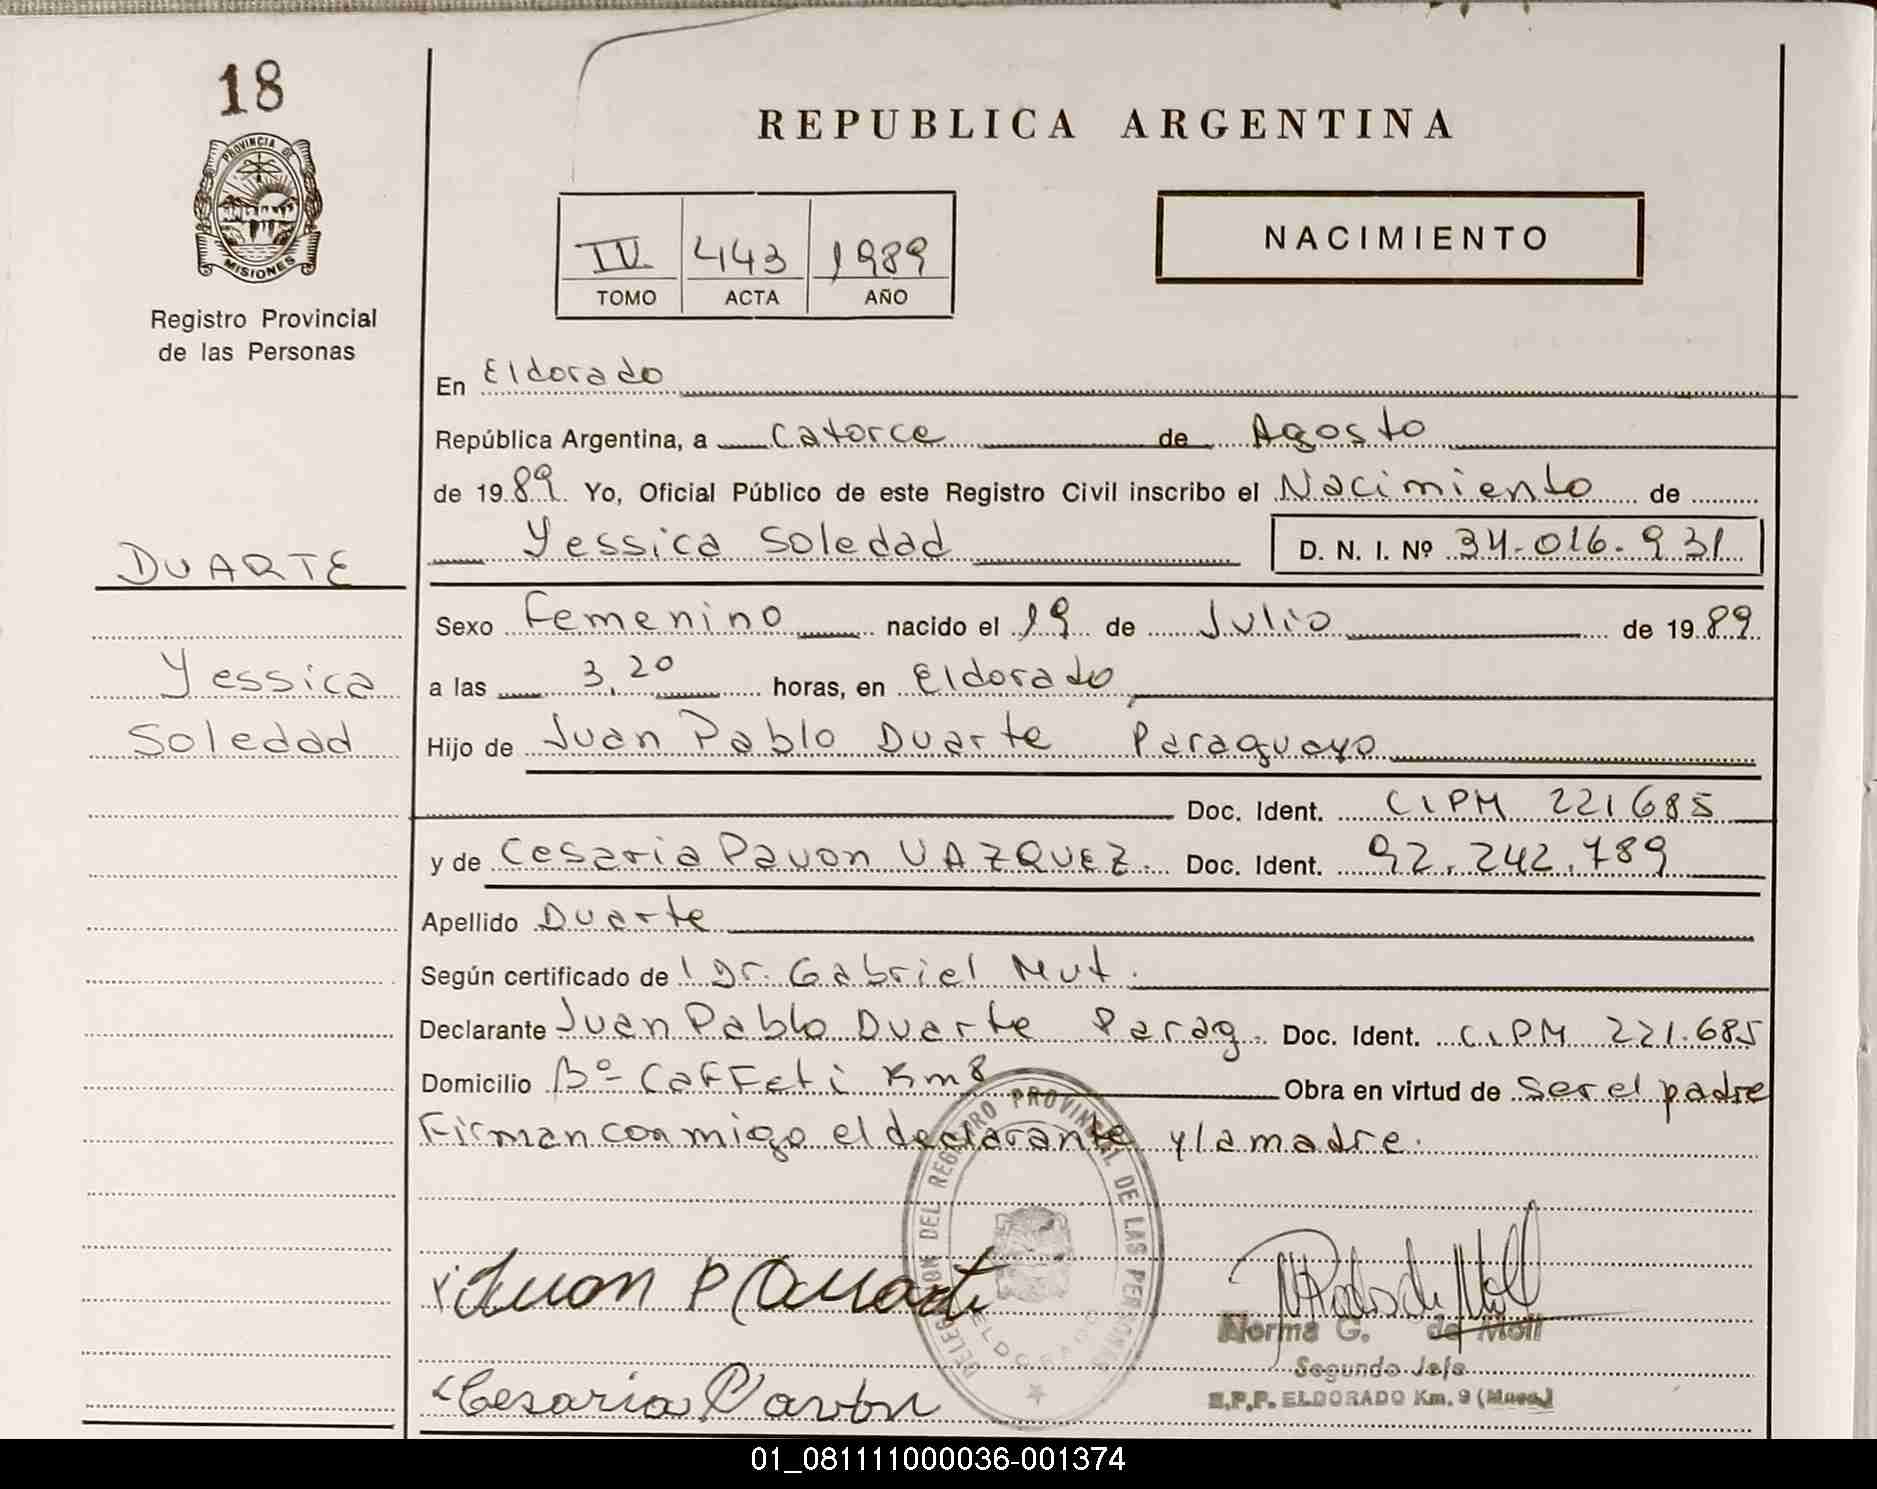 18
PROVINCIA DE
MISIONES
Registro Provincial
de las Personas
REPUBLICA ARGENTINA
IV 443 1989
TOMO ACTA AÑO
NACIMIENTO
En Eldorado
República Argentina, a Catorce de Agosto
de 1989. Yo, Oficial Público de este Registro Civil inscribo el Nacimiento de
Yessica Soledad D. N. I. Nº 34.016.931
DUARTE
Yessica
Soledad
Sexo Femenino nacido el 19 de Julio de 1989
a las 3,20 horas, en Eldorado
Hijo de Juan Pablo Duarte Paraguayo
Doc. Ident. CIPM 221685
y de Cesaria Pavon VAZQUEZ. Doc. Ident. 92.242.789
Apellido Duarte
Según certificado de l Dr. Gabriel Mut.
Declarante Juan Pablo Duarte Parag. Doc. Ident. CIPM 221.685
Domicilio Bº Caffeti Km 8 Obra en virtud de ser el padre
Firman conmigo el declarante y la madre.
DELEGACION DEL REGISTRO PROVINCIAL DE LAS PERSONAS
ELDORADO
Juan P Duarte
Norma G. de Moll
Segundo Jefe
R.P.P. ELDORADO Km. 9 (Mnes.)
Cesaria Pavón
01_081111000036-001374